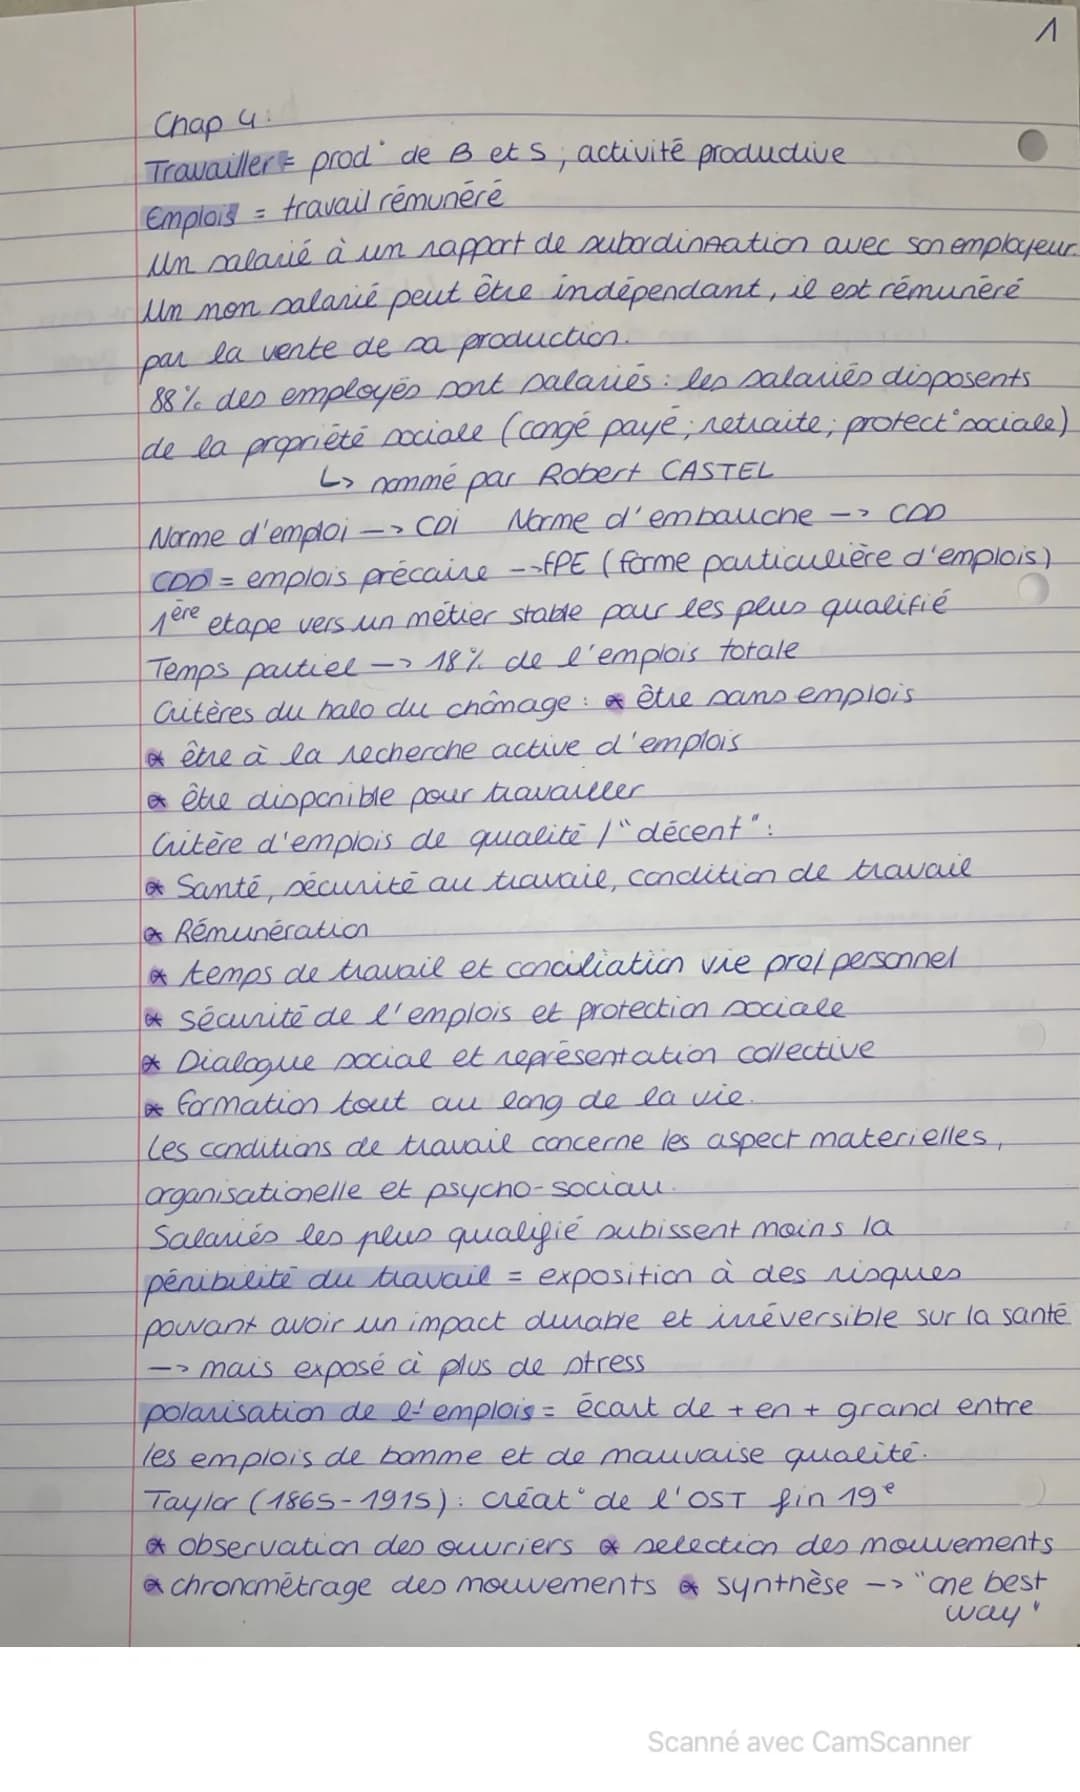 1
Chap 4:
Travailler = prod° de B et S, activité productive
Emplois = travail rémunéré
Un salarié à un rapport de subordination avec son employeur.
Un non salarié peut être indépendant, il est rémunéré
par la vente de sa production.
88% des employés sont salariés : les salariés disposents
de la propriété sociale (congé payé; retraite; protect° sociale)
↳ nommé par Robert CASTEL
Norme d'emploi --> CDi Norme d'embauche --> CDD
CDD = emplois précaire --> FPE (forme particulière d'emplois)
1ère etape vers un métier stable pour les plus qualifié
Temps partiel --> 18% de l'emplois totale
Critères du halo du chômage : * être sans emplois
* être à la recherche active d'emplois
* être disponible pour travailler
Critère d'emplois de qualité / "décent" :
* Santé, sécurité au travail, condition de travail
* Rémunération
* temps de travail et conciliation vie pro/personnel
* sécurité de l'emplois et protection sociale
* Dialogue social et représentation collective
* formation tout au long de la vie.
Les conditions de travail concerne les aspect materielles,
organisationelle et psycho-sociau.
Salariés les plus qualifié subissent moins la
pénibilité du travail = exposition à des risques
pouvant avoir un impact durable et irréversible sur la santé
--> mais exposé à plus de stress
polarisation de l'emplois = écart de + en + grand entre
les emplois de bonne et de mauvaise qualité.
Taylor (1865-1915) : créat° de l'OST fin 19e
* observation des ouvriers * selection des mouvements
* chronométrage des mouvements * synthèse --> "one best
way"
Scanné avec CamScanner